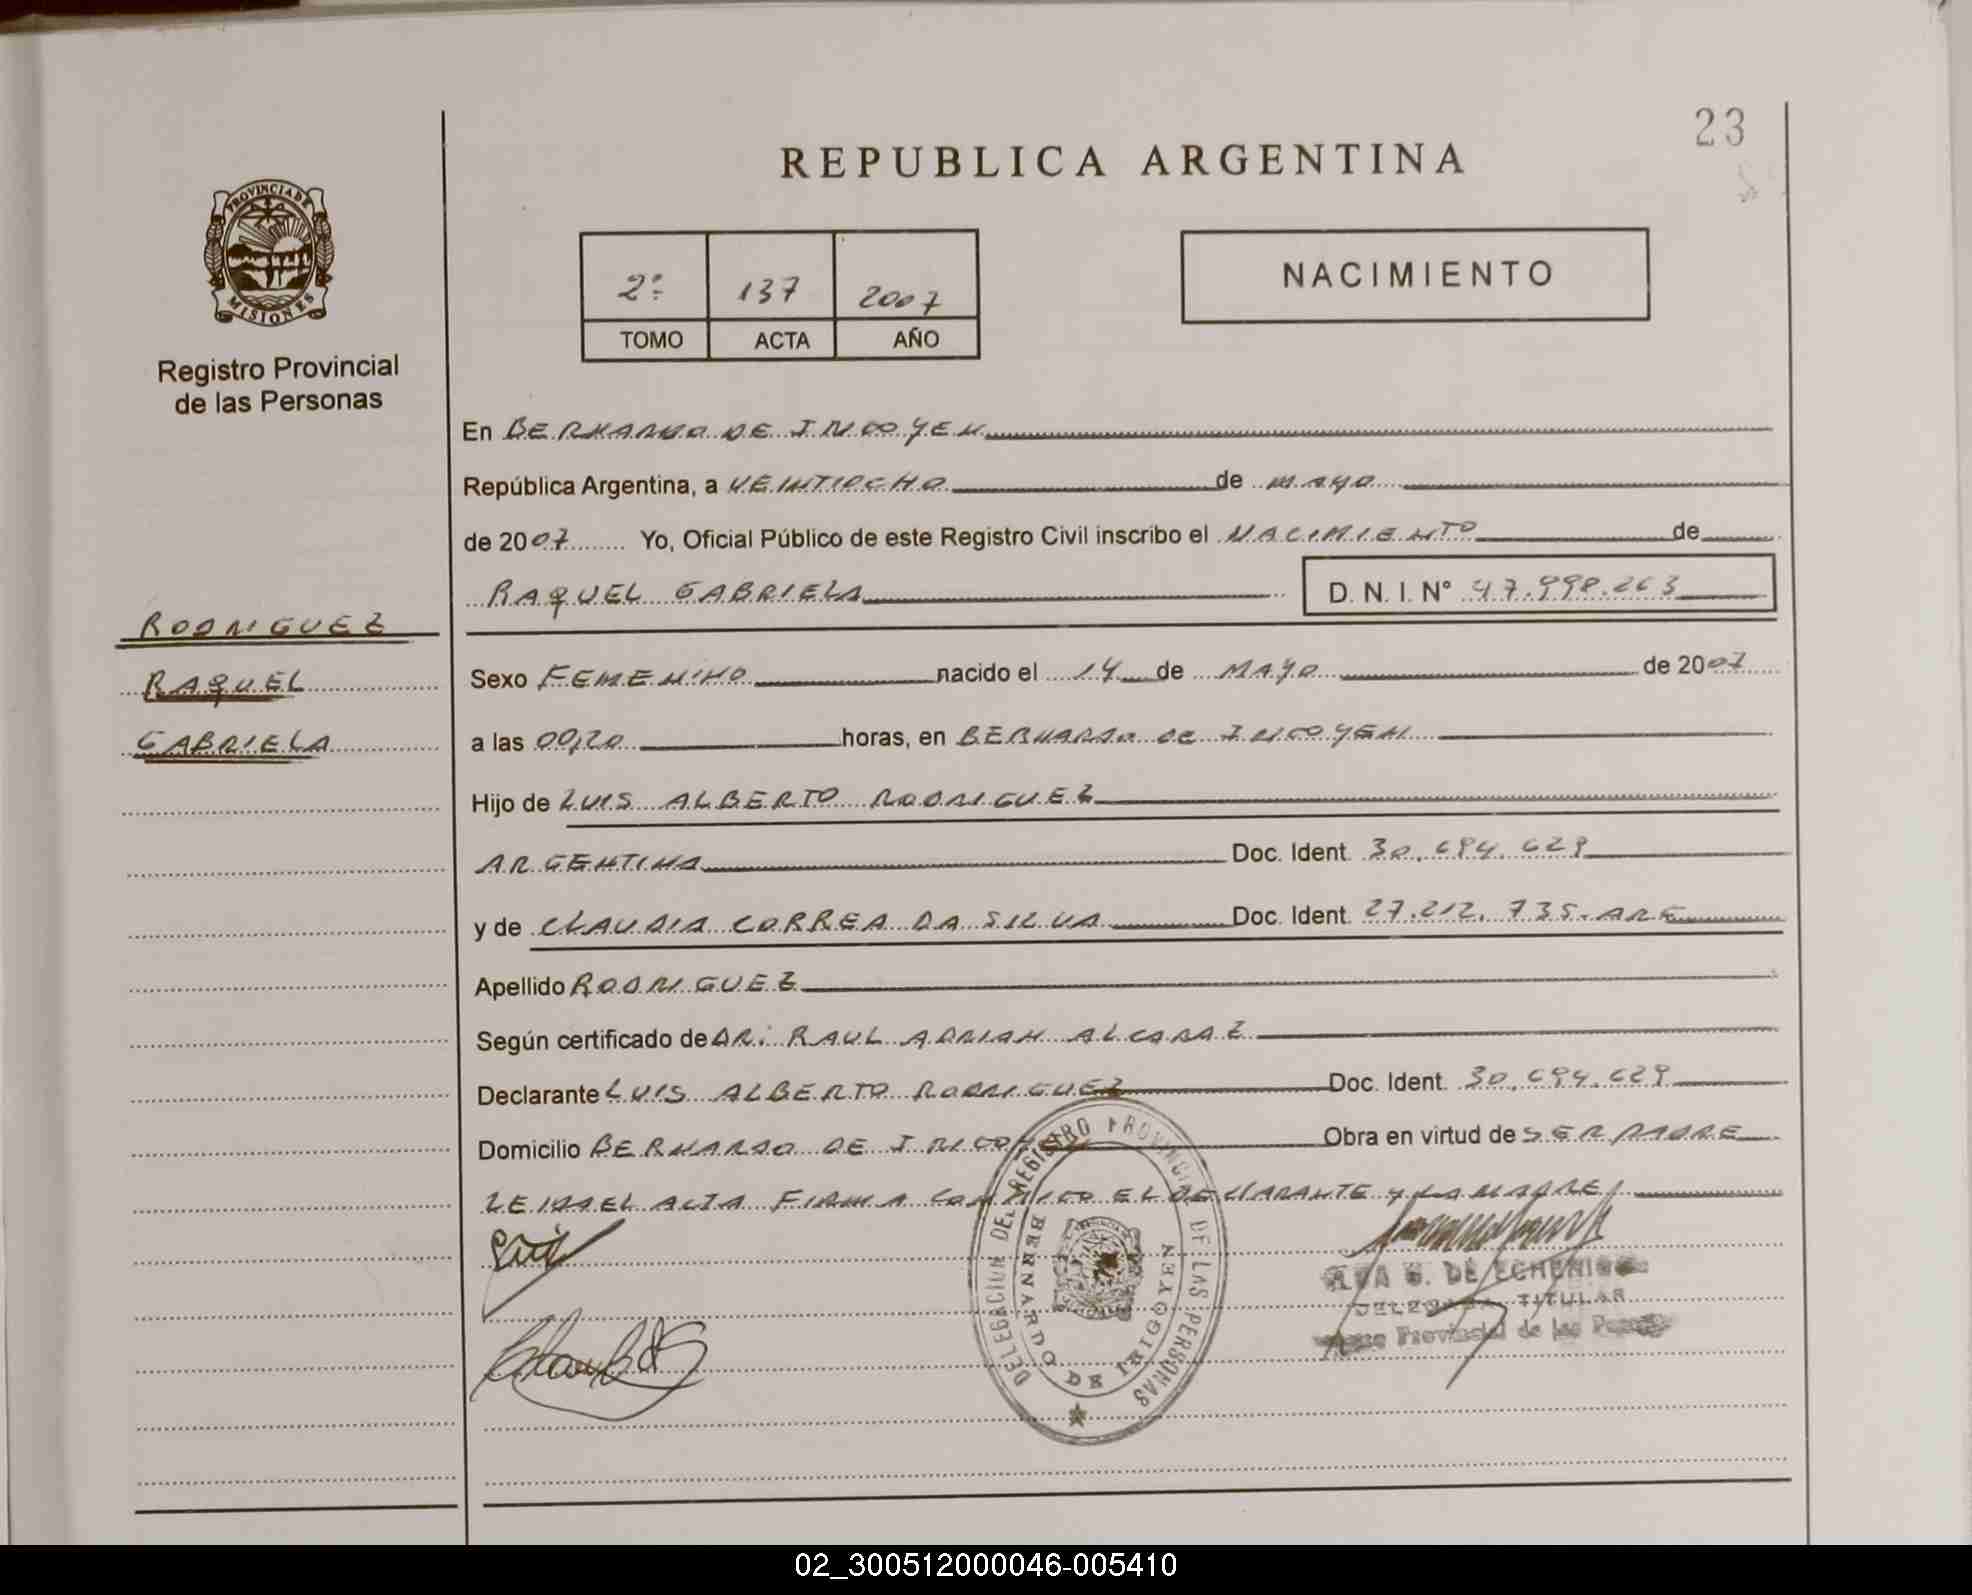 23
REPUBLICA ARGENTINA
PROVINCIA DE
MISIONES
Registro Provincial
de las Personas
2º 137 2007
TOMO ACTA AÑO
NACIMIENTO
En BERNARDO DE IRIGOYEN
República Argentina, a VEINTIOCHO de MAYO
de 2007 Yo, Oficial Público de este Registro Civil inscribo el NACIMIENTO de
RAQUEL GABRIELA D. N. I. Nº 47.998.263
RODRIGUEZ
RAQUEL
GABRIELA
Sexo FEMENINO nacido el 14 de MAYO de 2007
a las 00,20 horas, en BERNARDO DE IRIGOYEN
Hijo de LUIS ALBERTO RODRIGUEZ
ARGENTINA Doc. Ident. 30.694.629
y de CLAUDIA CORREA DA SILVA Doc. Ident. 27.212.735.ARG
Apellido RODRIGUEZ
Según certificado de DR: RAUL ADRIAN ALCARAZ
Declarante LUIS ALBERTO RODRIGUEZ Doc. Ident. 30.694.629
Domicilio BERNARDO DE IRIGOYEN Obra en virtud de SER PADRE
LEIDA EL ACTA FIRMA CONMIGO EL DECLARANTE Y LA MADRE
DELEGACION DEL REGISTRO PROVINCIAL DE LAS PERSONAS
BERNARDO DE IRIGOYEN
DE ECHENIQUE
DELEGADA TITULAR
Provincial de las Personas
02_300512000046-005410